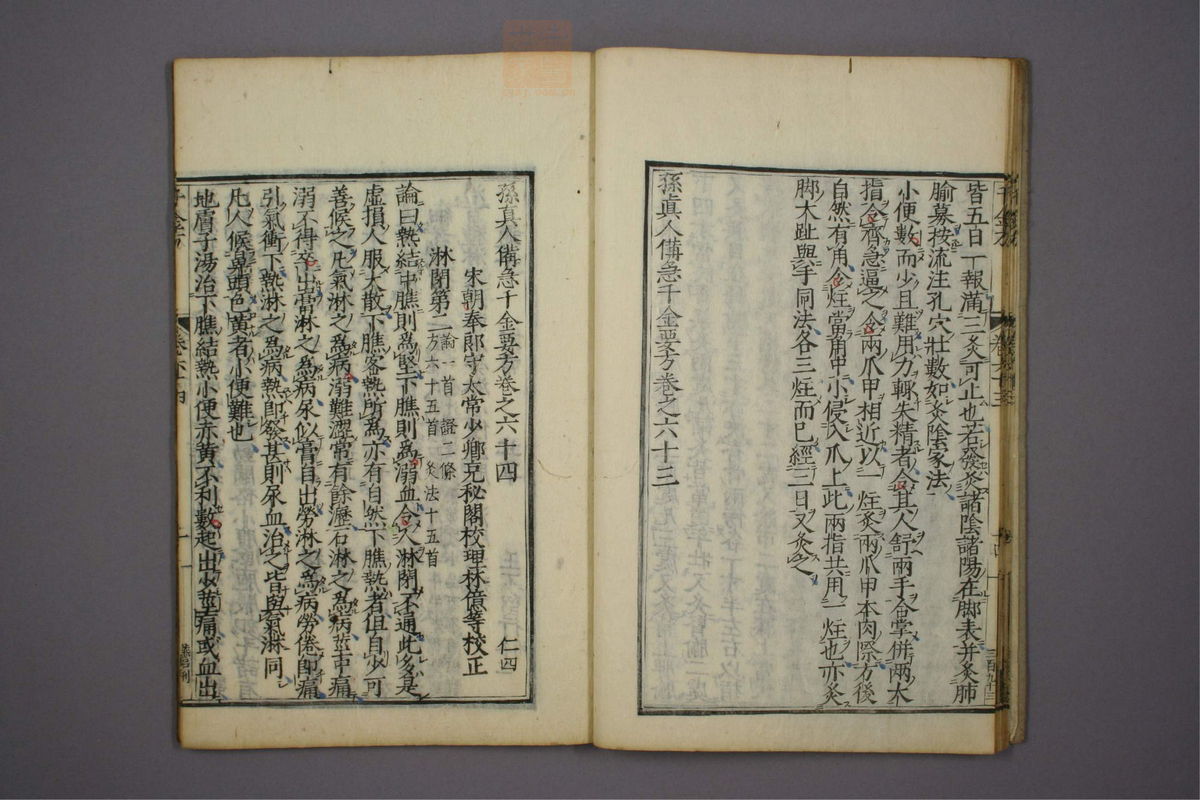 皆五日一報滿三灸可止也若發灸諸陰諸陽在脚表并灸肺
腧募按流注孔穴壯數如灸陰家法
小便數而少且難用力輒失精者令其人舒兩手合掌併兩大
指令齊急逼之令兩爪甲相近以一炷灸兩爪甲本肉際方後
自然有角令炷當角中小侵入爪上此兩指共用一炷也亦灸
脚大趾與手同法各三炷而已經三日又灸之
孫眞人備急千金要方卷之六十三
孫眞人備急千金要方卷之六十四
仁四
宋朝奉郎守太常少卿充秘閣校理林億等校正
淋閉第二
論一首 證二條
方六十五首 灸法十五首
論曰熱結中膲則爲堅下膲則爲溺血令人淋閉不通此多是
虛損人服大散下膲客熱所爲亦有自然下膲熱者但自少可
善候之凡氣淋之爲病溺難澀常有餘瀝石淋之爲病莖中痛
溺不得卒出膏淋之爲病尿似膏自出勞淋之爲病勞倦即痛
引氣衝下熱淋之爲病熱即發甚則尿血治之皆與氣淋同
凡人候鼻頭色黃者小便難也
地膚子湯治下膲結熱小便赤黃不利數起出少莖痛或血出